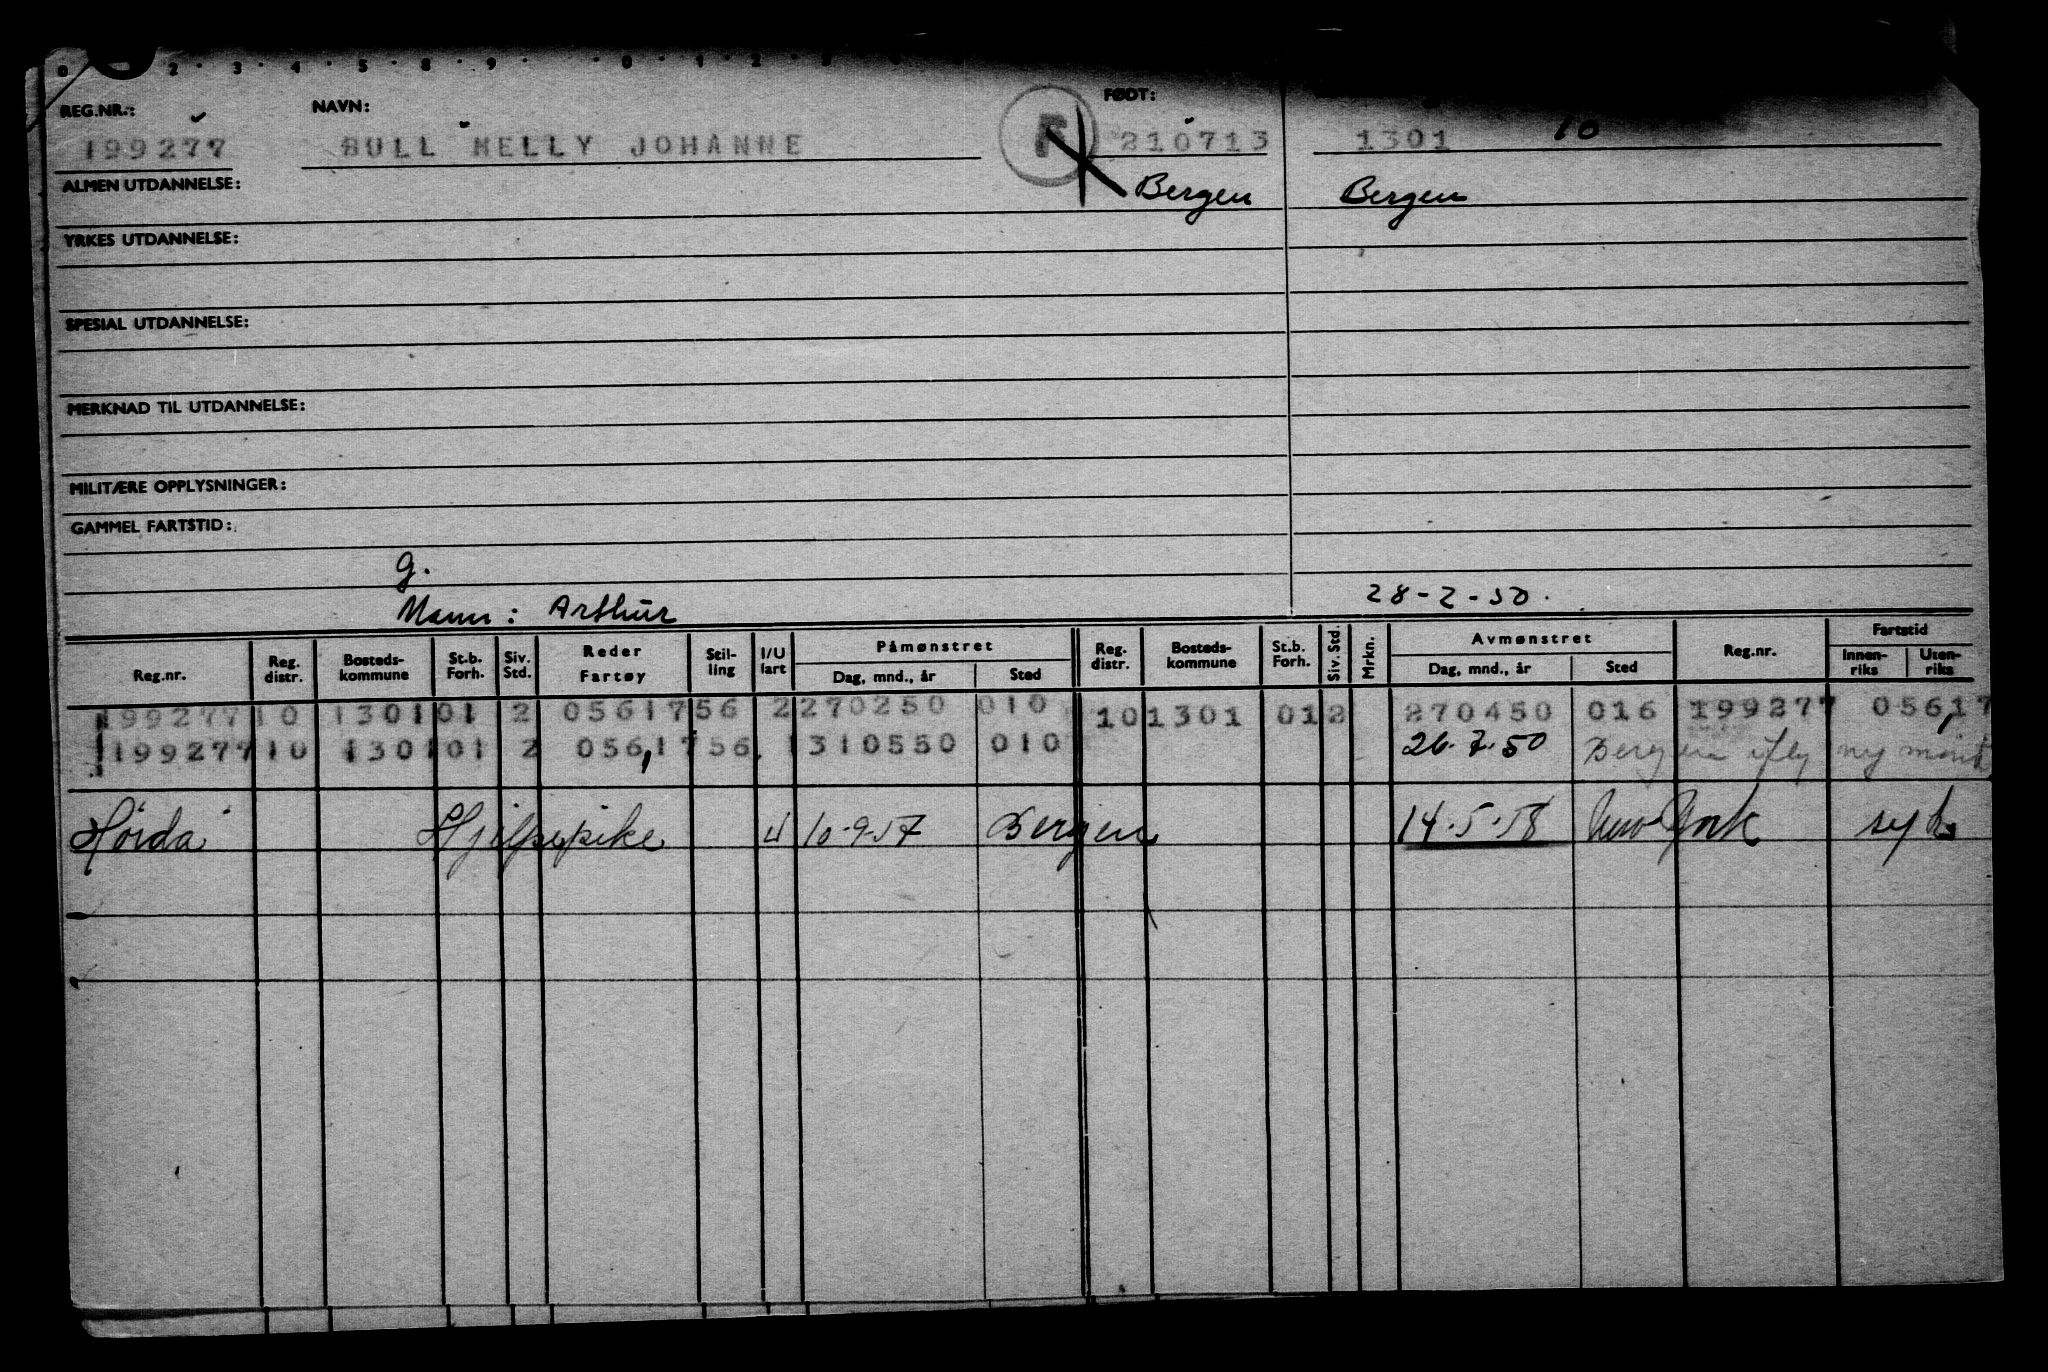 REG.NR.: NAVN: FØDT:
199277 BULL NELLY JOHANNE F 210713 1301 10
ALMEN UTDANNELSE: Bergen Bergen
YRKES UTDANNELSE:
SPESIAL UTDANNELSE:
MERKNAD TIL UTDANNELSE:
MILITÆRE OPPLYSNINGER:
GAMMEL FARTSTID:
g.
Mann: Arthur 28-2-50.
Reg.nr. Reg. distr. Bosteds-kommune St.b. Forh. Siv. Std. Reder Fartøy Stil-ling I/U fart Påmønstret Dag, mnd., år Sted Reg. distr. Bosteds-kommune St.b. Forh. Siv. Std. Mrkn. Avmønstret Dag, mnd., år Sted Reg.nr. Fartstid Innen-riks Uten-riks
199277 10 1301 01 2 05617 56 2 270250 010 10 1301 01 2 270450 016 199277 05617
199277 10 1301 01 2 05617 56 1 310550 010 26.7.50 Bergen ny
Horda Hjelpepike U 10-9-57 Bergen 14-5-58 New York syk